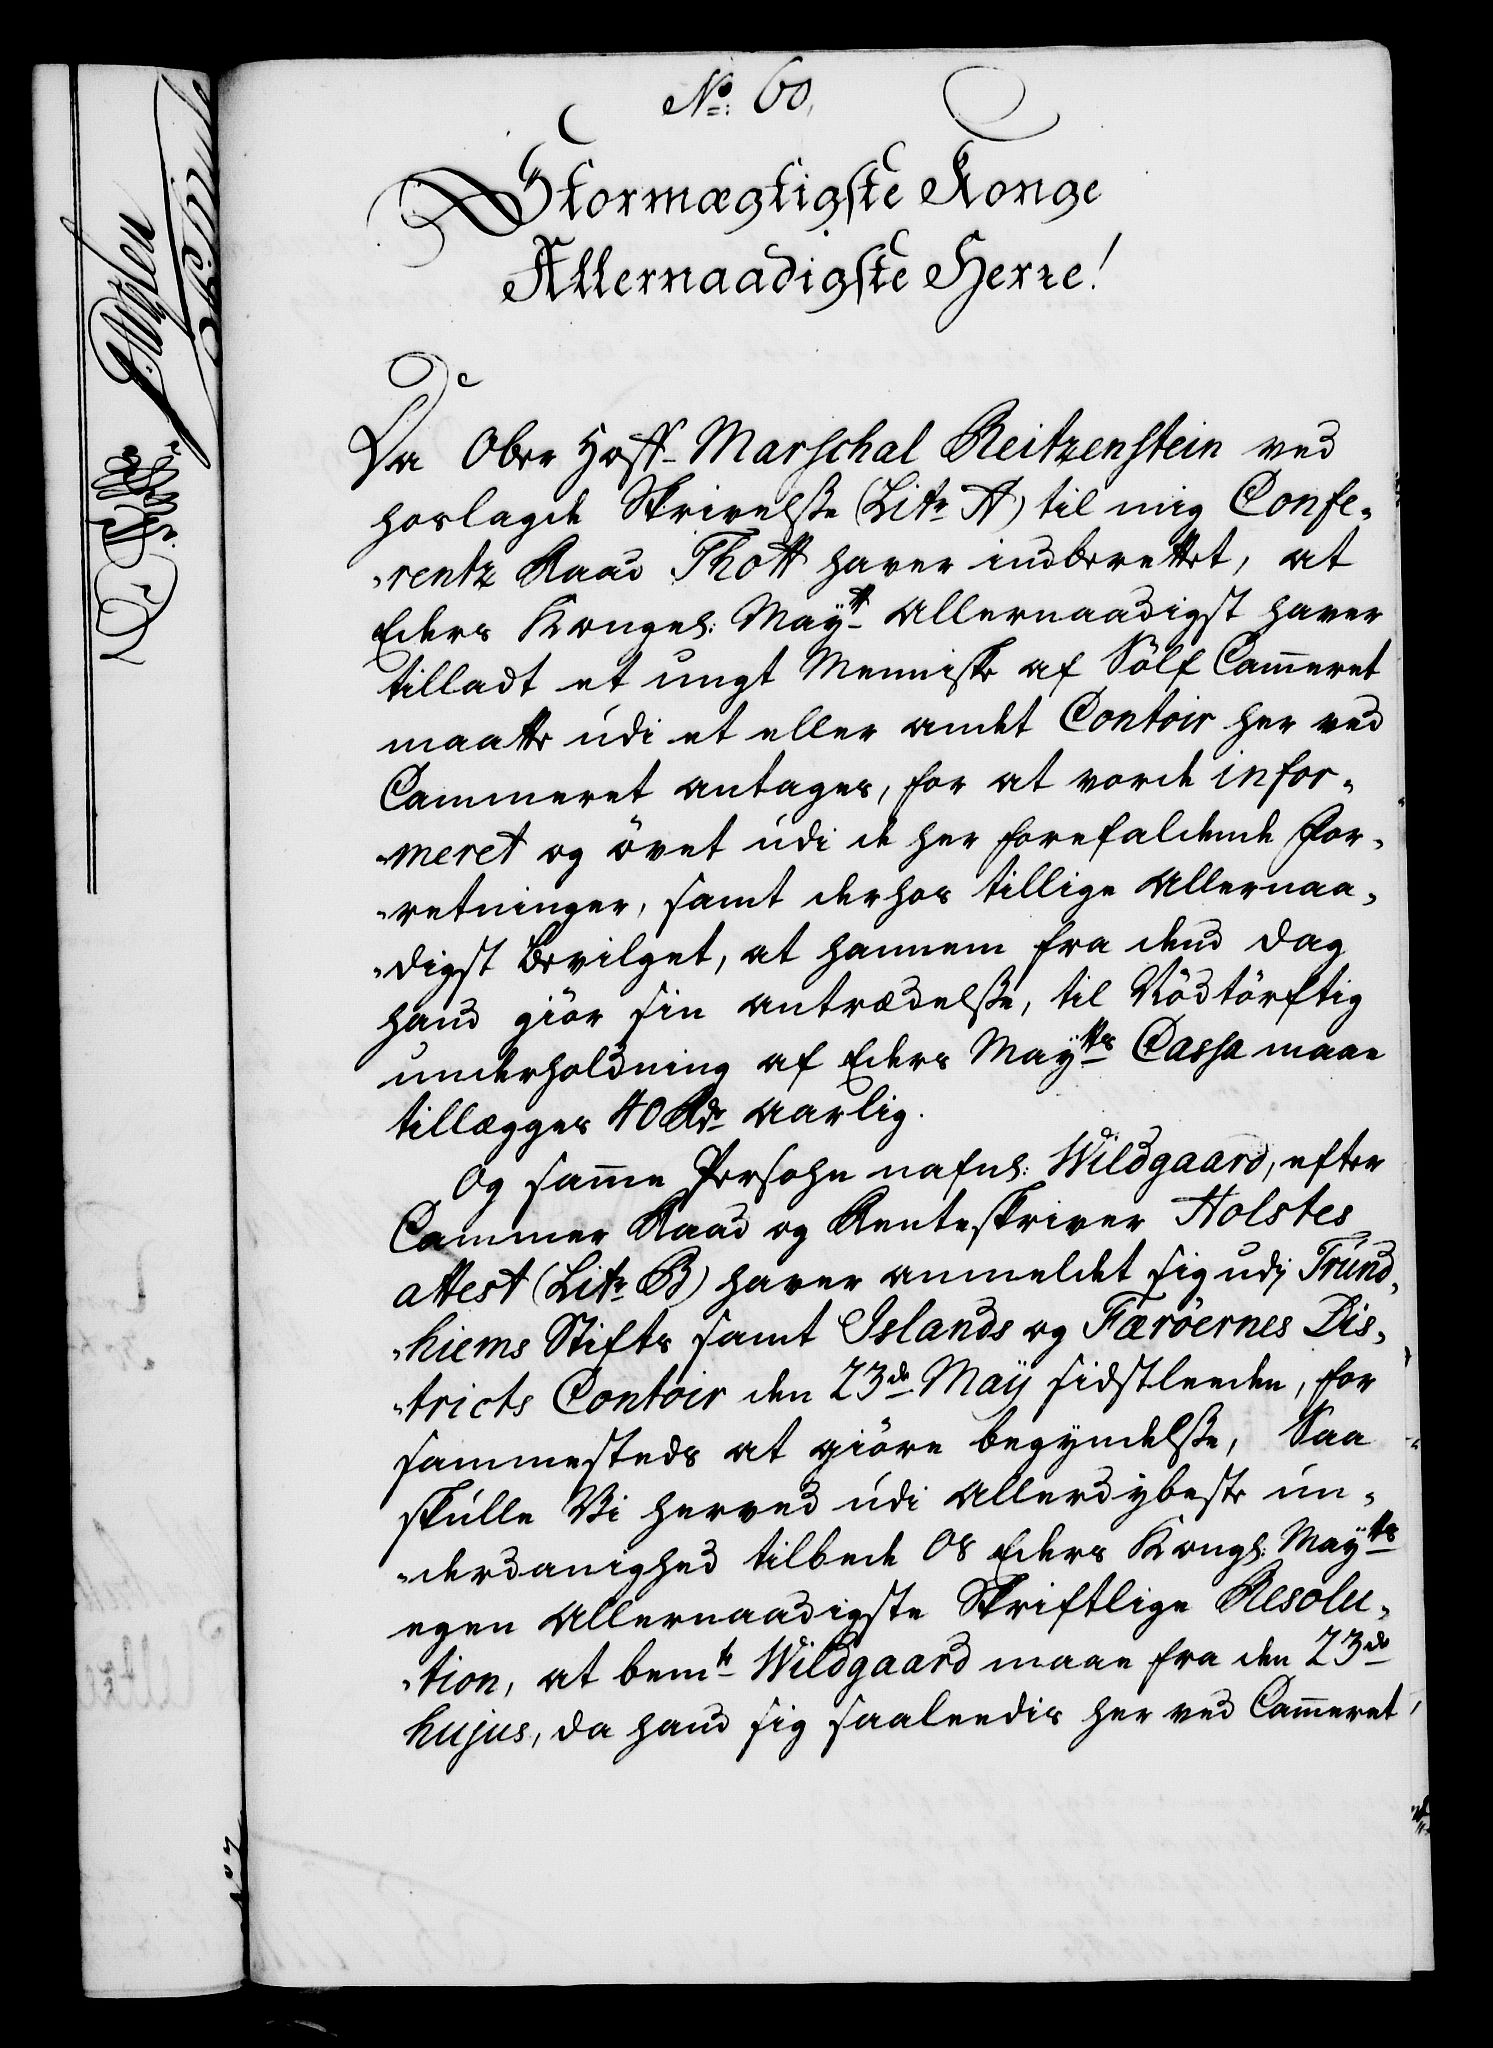 No: 60,
Stormægtigste Konge
Allernaadigste Herre!
Da Ober Hoff-Marschal Reitzenstein ved
hoslagde Skrivelsße (Litr A) til mig Confe-
-rentz Raad Thott haver indberettet, at
Eders Kongel: Maytt Allernaadigst haver
tilladt et ungt Menniske af Sölf Cam̄eret
maatte údi et eller andet Contoir her ved
Cammeret antages, for at vorde infor-
-meret og övet údi de her forefaldende For-
-retninger, samt derhos tillige Allernaa-
-digst bevilget, at hannem fra dend Dag
hand giör sin antrædelsße, til Nödtörftig
underholdning af Eders Maytts Cassa maae
tillægges 40 Rdr aarlig.
Og sam̄e Persohn nafnl: Wildgaard, efter
Cammer Raad og Renteskriver Holstes
attest (Litr B) haver anmeldet sig udj Trúnd-
-hiems Stifts samt Islands og Færöernes Dis-
-tricts Contoir den 23de Maÿ sidstleeden, for
sammesteds at giöre begyndelsße, Saa
skúlle Vi herved údi Allerdybeste ún-
-derdanighed tilbede os Eders Kongl: Maytts
egen Allernaadigste Skriftlige Resolu-
-tion, at bemte Wildgaard maae fra den 23de
hujus, da hand sig saaleedis her ved Cam̄eret